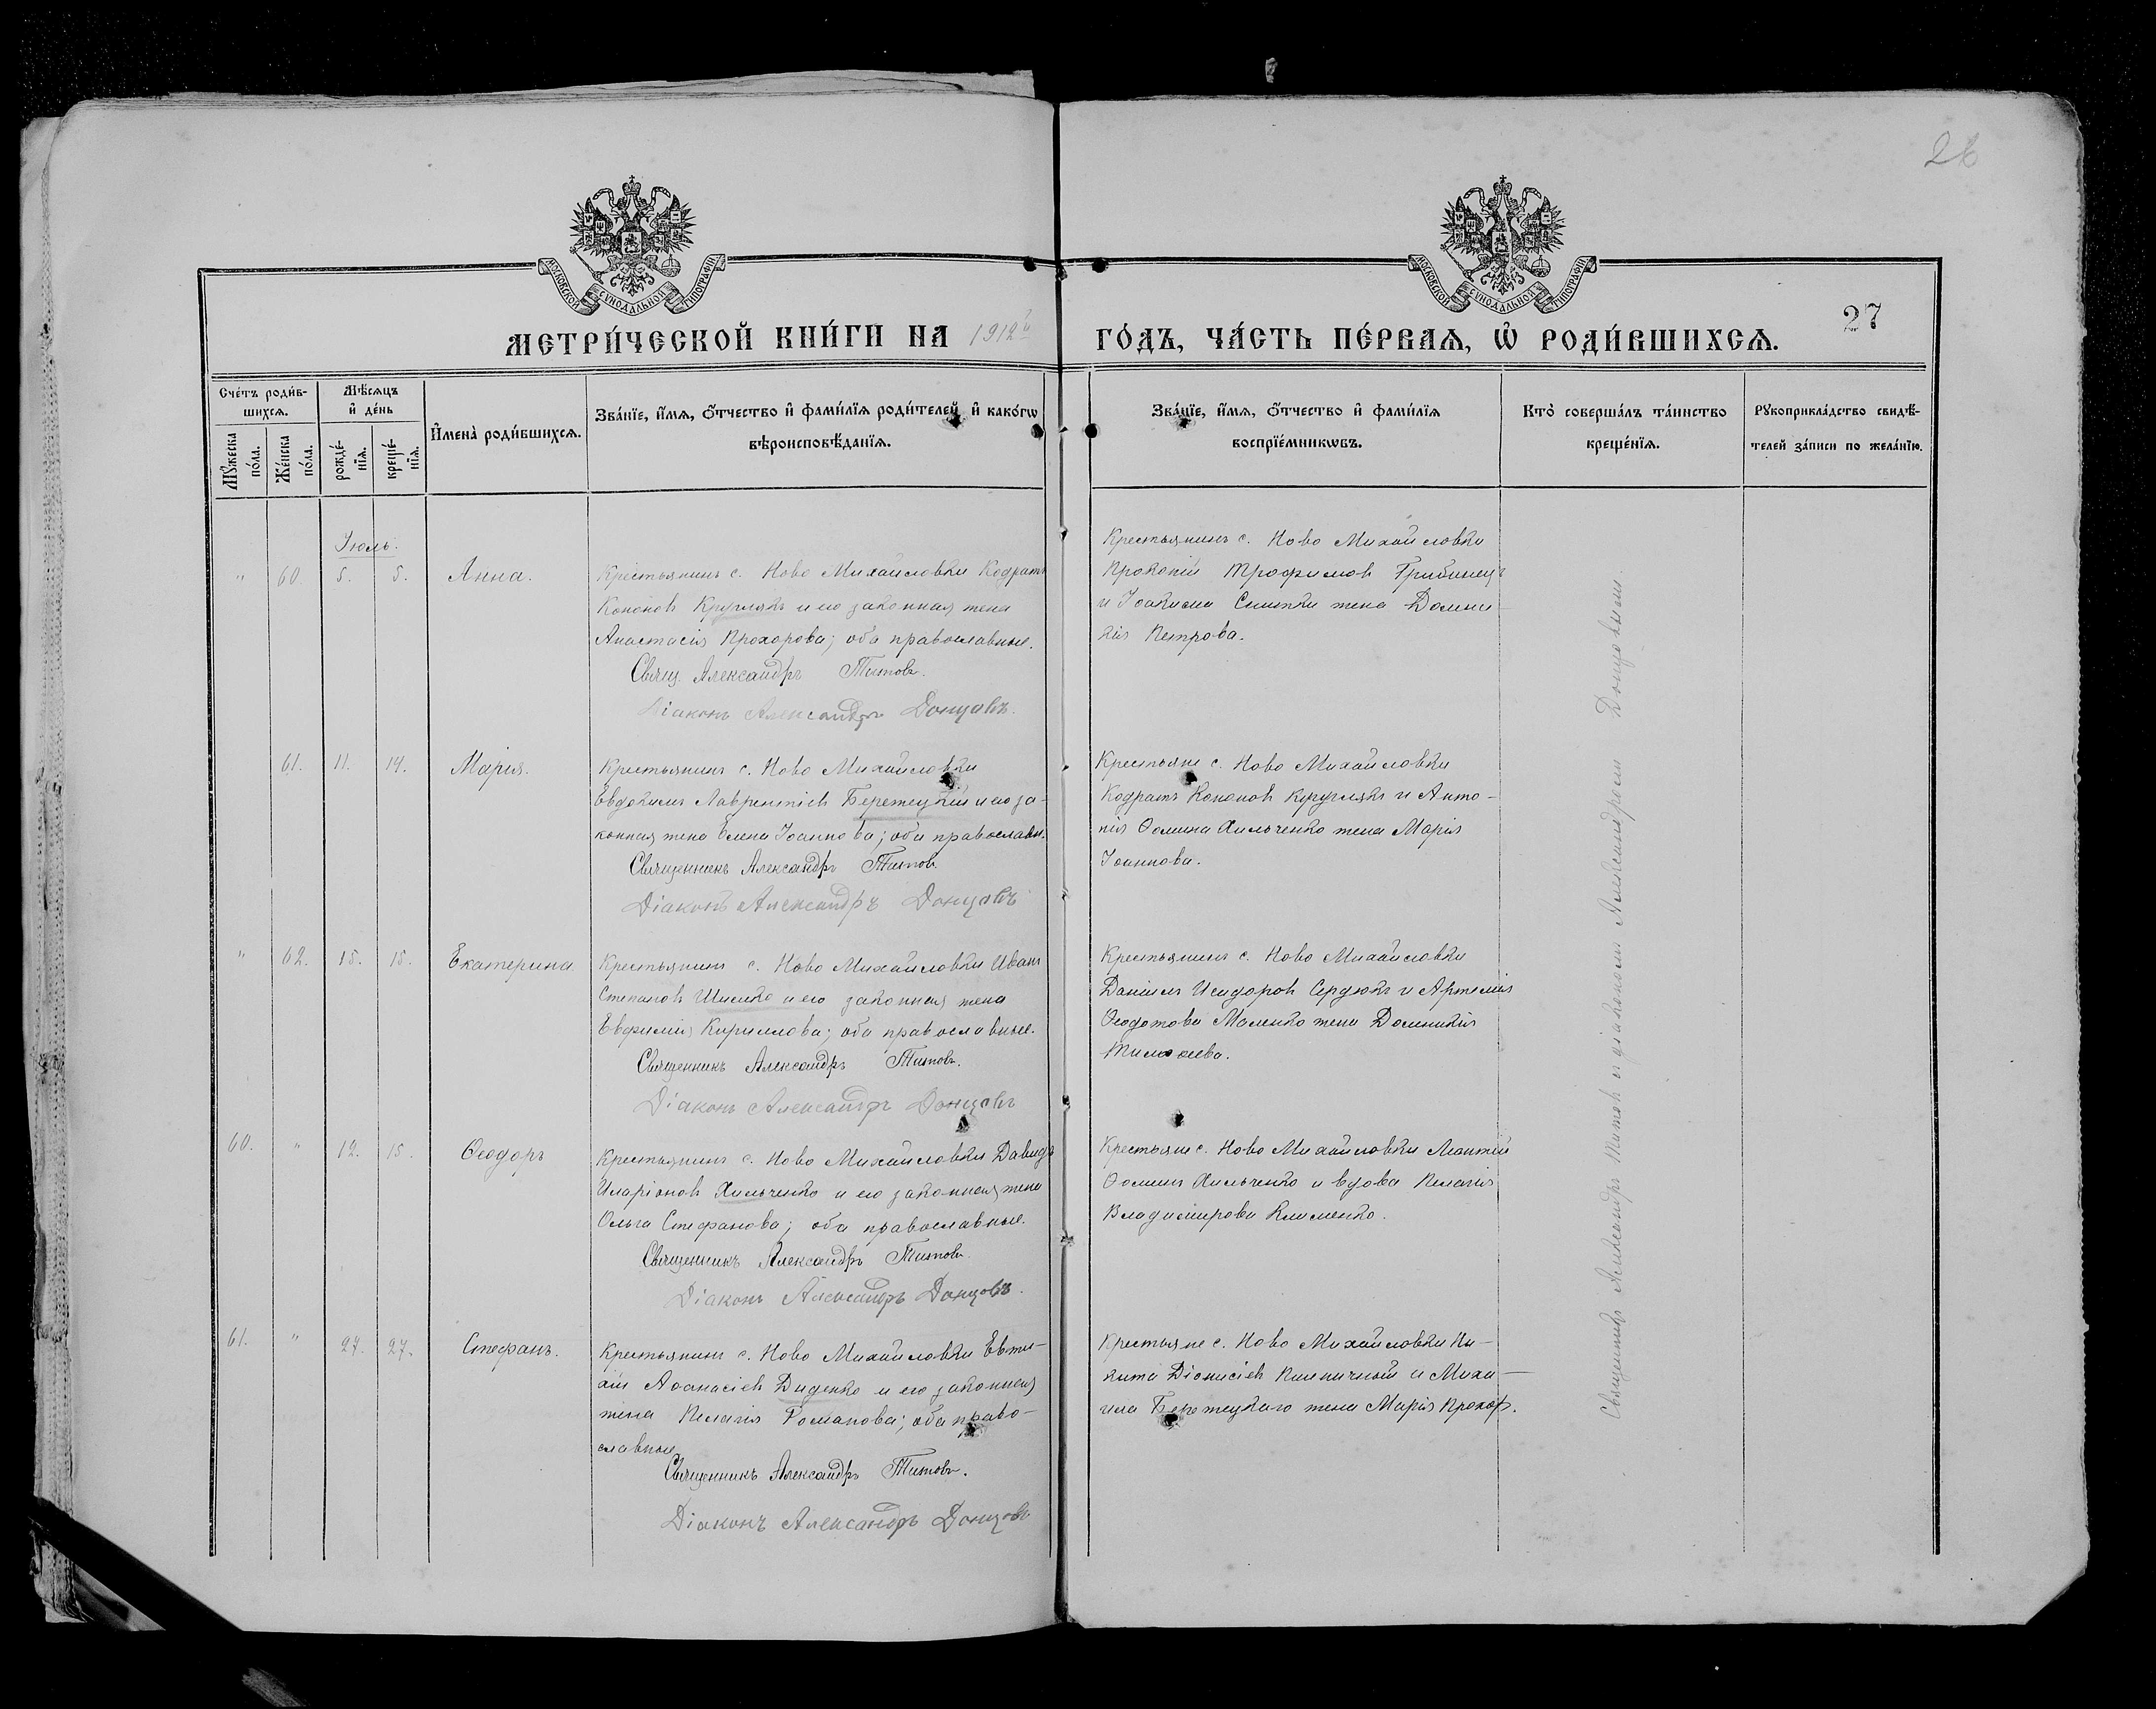 26
МОСКОВСКОЙ СѴНОДАЛЬНОЙ ТИПОГРАФІИ
МОСКОВСКОЙ СѴНОДАЛЬНОЙ ТИПОГРАФІИ
27
МЕТРИ́ЧЕСКОЙ КНИ́ГИ НА 1912й ГО́ДЪ, ЧА́СТЬ ПЕ́РВАѦ, Ѡ҆ РОДИ́ВШИХСѦ.
Сче́тъ роди́в-
шихсѧ.
Мѣ́сѧцъ
и҆ де́нь
Мꙋ́жеска
по́ла.
Же́нска
по́ла.
рожде́-
нїѧ.
креще́-
нїѧ.
И҆мена̀ роди́вшихсѧ.
Зва́нїе, и҆́мѧ, ѻ҆́тчество и҆ фами́лїѧ роди́телей и҆ како́гѡ
вѣроисповѣ́данїѧ.
Зва́нїе, и҆́мѧ, ѻ҆́тчество и҆ фами́лїѧ
воспрїе́мникѡвъ.
Кто̀ соверша́лъ та́инство
креще́нїѧ.
Рꙋкоприкла́дство свидѣ́-
телей за́писи по жела́нїю.
Іюль.
" 60. 5. 5. Анна.
Крестьянинъ с. Ново Михайловки Кодратъ
Кононовъ Круглякъ и его законная жена
Анастасія Прохорова; оба православные.
Свящ. Александръ Титовъ.
Діаконъ Александръ Донцовъ.
Крестьянинъ с. Ново Михайловки
Прокопій Трофимовъ Грибинецъ
и Іоакима жена Домни-
кія Петрова.
61. 11. 14. Марія.
Крестьянинъ с. Ново Михайловки
Евдокимъ Лаврентіевъ Бережецкій и его за-
конная жена Елена Іоаннова; оба православн.
Священникъ Александръ Титовъ
Діаконъ Александръ Донцовъ
Крестьяне с. Ново Михайловки
Кодратъ Кононовъ Круглякъ и Анто-
нія Ѳомина Хильченко жена Марія
Іоаннова.
" 62. 15. 15. Екатерина
Крестьянинъ с. Ново Михайловки Иванъ
Степановъ Шишко и его законная жена
Евфимія Кириллова; оба православные.
Священникъ Александръ Титовъ.
Діаконъ Александръ Донцовъ
Крестьянинъ с. Ново Михайловки
Даніилъ Исидоровъ Сердюкъ и Артемія
Ѳеодотова Маленко жена Домникія
60. " 12. 15. Ѳеодоръ
Крестьянинъ с. Ново Михайловки Давидъ
Иларіоновъ Хильченко и его законная жена
Ольга Стефанова; оба православные.
Священникъ Александръ Титовъ
Діаконъ Александръ Донцовъ.
Крестьяне с. Ново Михайловки Леонтій
Ѳоминъ Хильченко и вдова Пелагія
Владимірова Клименко.
61. " 27. 27. Стефанъ.
Крестьянинъ с. Ново Михайловки Евти-
хій Аѳанасіевъ Диденко и его законная
жена Пелагія Романова; оба право-
славные
Священникъ Александръ Титовъ.
Діаконъ Александръ Донцовъ
Крестьяне с. Ново Михайловки Ни-
кита Діонисіевъ Пшеничный и Миха-
ила Бережецкаго жена Марія Прохор.
Священникъ Александръ Титовъ съ діакономъ Александромъ Донцовымъ.